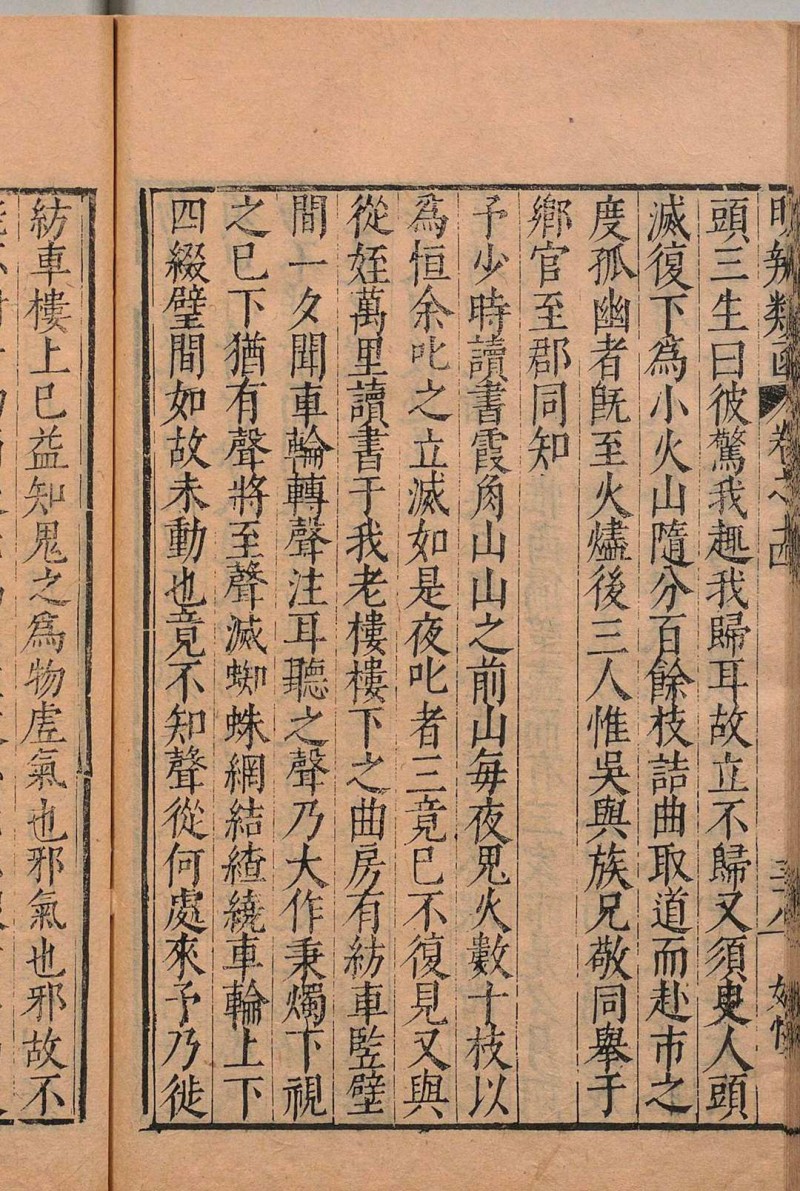 明辨類函 卷之 三八
頭三生曰彼驚我趣我歸耳故立不歸又須臾人頭
滅復下為小火山隨分百餘枝詰曲取道而赴市之
度孤幽者旣至火燼後三人惟吳與族兄敬同舉于
鄉官至郡同知
予少時讀書霞角山山之前山每夜鬼火數十枝以
爲恒余叱之立滅如是夜叱者三竟已不復見又與
從姪萬里讀書于我老樓樓下之曲房有紡車監壁
間一夕聞車輪轉聲注耳聽之聲乃大作秉燭下視
之已下猶有聲將至聲滅蜘蛛網結纏繞車輪上下
四綴壁間如故未動也竟不知聲從何處來予乃徙
紡車樓上已益知鬼之爲物虛氣也邪氣也邪故不